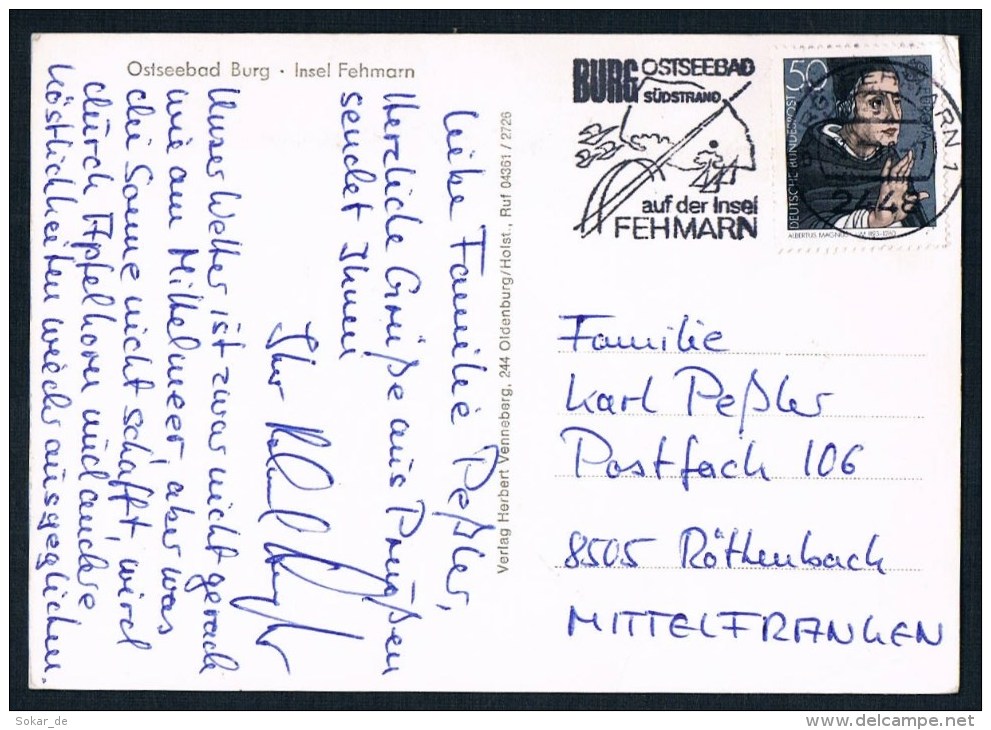 Ostseebad Burg · Insel Fehmarn
Liebe Familie Peßler,
Herzliche Grüße aus Preußen
sendet Ihnen
Ihr
Unser Wetter ist zwar nicht gerade
wie am Mittelmeer, aber was
die Sonne nicht schafft, wird
durch Apfelkorn und andere
Köstlichkeiten wieder ausgeglichen.
Verlag Herbert Venneberg, 244 Oldenburg/Holst., Ruf 04361 / 2726
BURG OSTSEEBAD
SÜDSTRAND
auf der Insel
FEHMARN
50
DEUTSCHE BUNDESPOST
ALBERTUS MAGNUS
2448
Familie
Karl Peßler
Postfach 106
8505 Röthenbach
MITTELFRANKEN
Sokar_de
www.delcampe.net